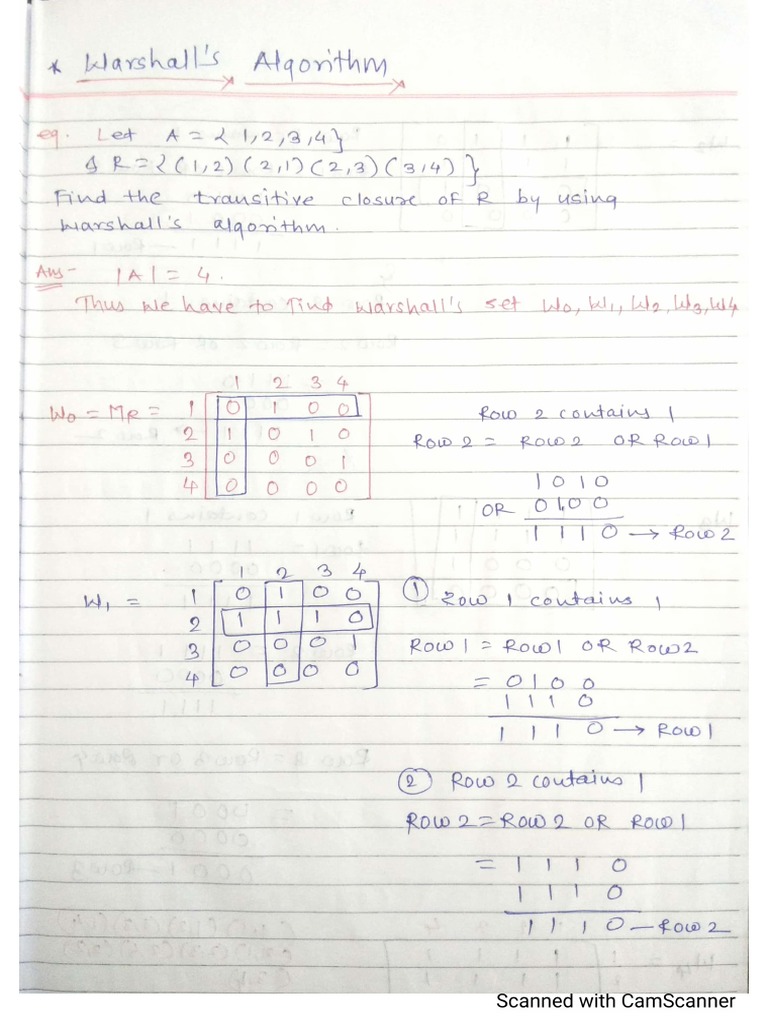 * Warshall's Algorithm
eg. Let A = { 1,2,3,4}
& R = {(1,2) (2,1) (2,3) (3,4) }
Find the transitive closure of R by using
Warshall's algorithm.
Ans- |A| = 4.
Thus we have to find Warshall's set W0, W1, W2, W3, W4
1 2 3 4
W0 = MR = 1 0 1 0 0
2 1 0 1 0
3 0 0 0 1
4 0 0 0 0
Row 2 contains 1
Row 2 = Row 2 OR Row 1
1 0 1 0
OR 0 1 0 0
1 1 1 0 → Row 2
1 2 3 4
W1 = 1 0 1 0 0
2 1 1 1 0
3 0 0 0 1
4 0 0 0 0
① Row 1 contains 1
Row 1 = Row 1 OR Row 2
= 0 1 0 0
1 1 1 0
1 1 1 0 → Row 1
② Row 2 contains 1
Row 2 = Row 2 OR Row 1
= 1 1 1 0
1 1 1 0
1 1 1 0 — Row 2
Scanned with CamScanner